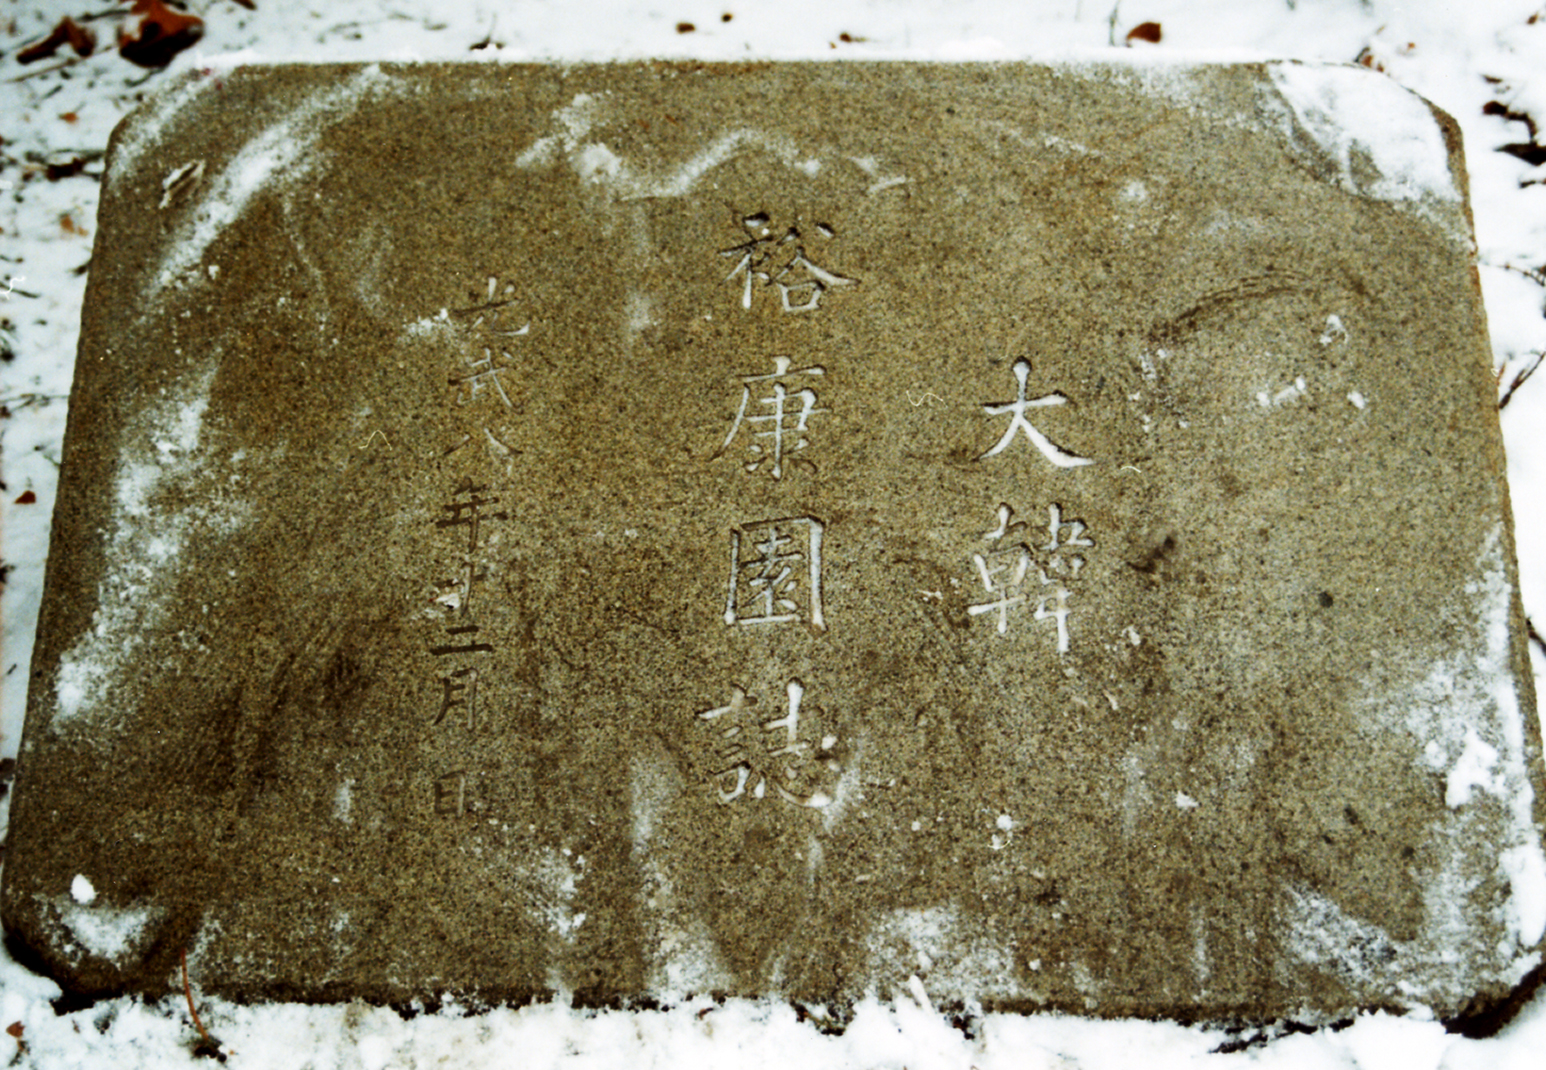 大韓
裕康園誌
光武八年十二月日